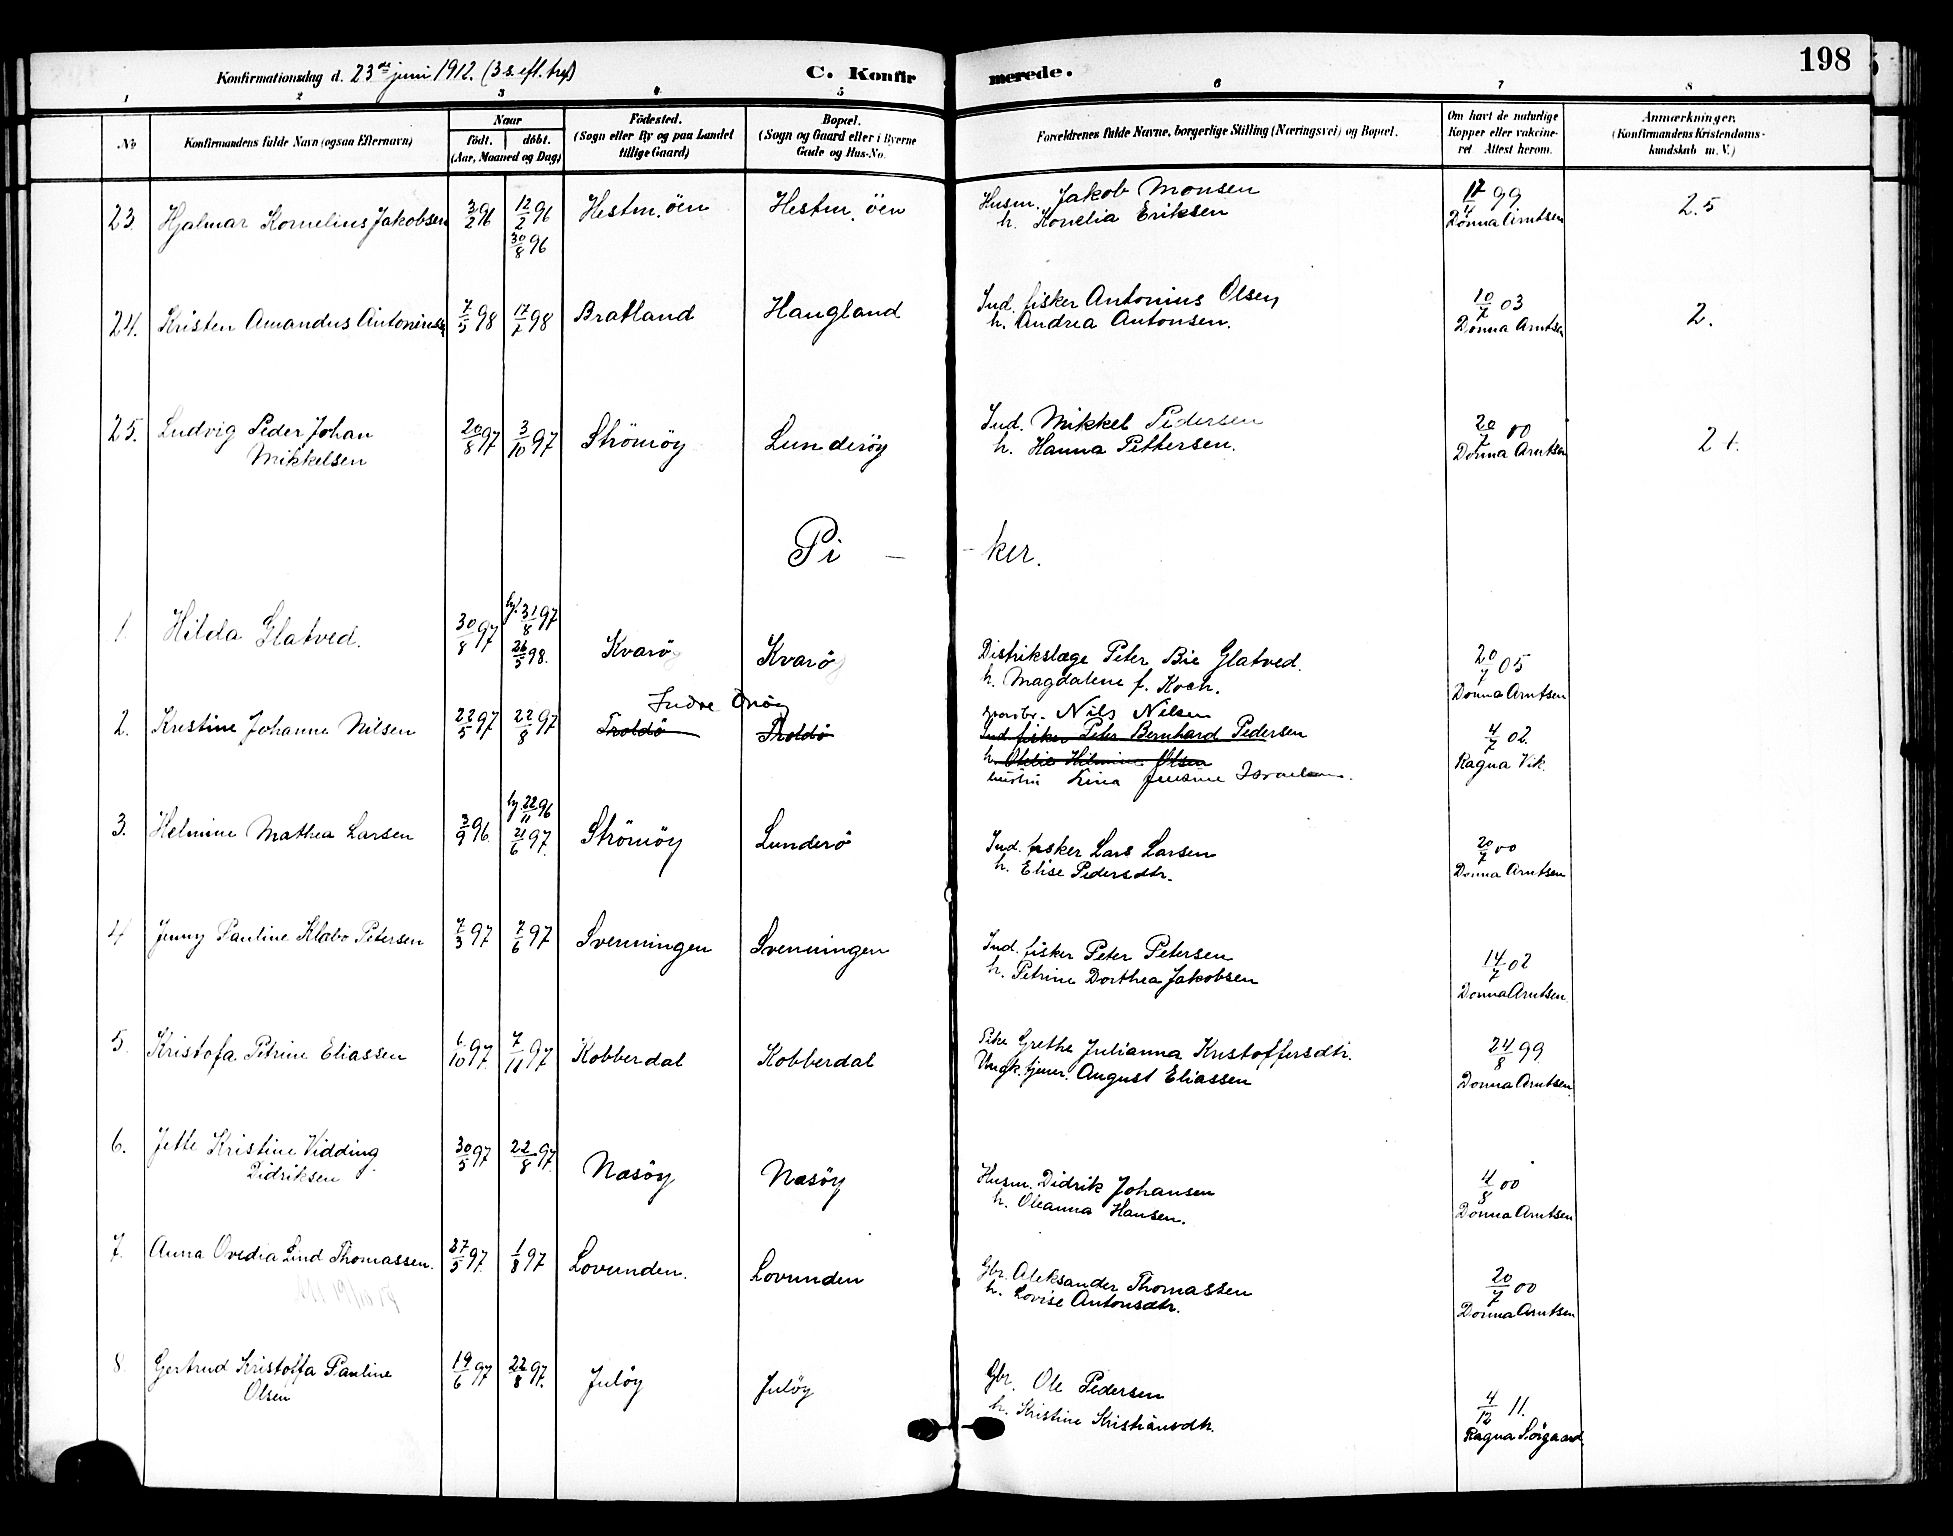 198
Konfirmationsdag d. 23de juni 1912. (3 s. eft. tref)
C. Konfirmerede.
1 2 3 4 5 6 7 8
No
Konfirmandens fulde Navn (ogsaa Efternavn)
Naar
födt. döbt.
(Aar, Maaned og Dag)
Födested.
(Sogn eller By og paa Landet
tillige Gaard)
Bopæl.
(Sogn og Gaard eller i Byerne
Gade og Hus-No.
Forældrenes fulde Navne, borgerlige Stilling (Næringsvei) og Bopæl.
Om havt de naturlige
Kopper eller vakcine-
ret Attest herom.
Anmærkninger.
(Konfirmandens Kristendoms-
kundskab m. V.)
23. Hjalmar Kornelius Jakobsen 3/2 96 12/2 96 Hestm.öen Hestm.öen Husm. Jakob Monsen 99 2.5
30/8 96 h. Konelia Eriksen Dönna Arntsen
24. Kristen Amandus Antonius 7/5 98 98 Bratland Haugland Ind. fisker Antonius Olsen 10/7 03 2.
h. Andrea Antonsen. Dönna Arntsen
25. Ludvig Peder Johan 20/8 97 3/10 97 Strömöy Lunderöy Ind. Mikkel Pedersen 20/7 00 2
Mikkelsen h. Hanna Pettersen. Dönna Arntsen
Pi - - ker.
1. Hilda Glatved. 30/8 97 hj. 31/8 97 Kvarö Kvarö Distriktslæge Peter Bie Glatved. 20/7 05
26/5 98. h. Magdalene f. Koch. Dönna Arntsen
Indre Onöy
2. Kristine Johanne Nilsen 22/5 97 22/8 97 Troldö Troldö Nils Nilsen 4/7 02.
Ind. fisker Peter Bernhard Pedersen Ragna Vik.
h. Olsen
hustru Israelsen.
3. Helmine Mathea Larsen 3/9 96. hj. 22/11 96 Strömöy Lunderö Ind. fisker Lars Larsen 20/7 00
21/6 97. h. Elise Pedersdtr. Dönna Arntsen
4 Jenny Pauline Klabo Petersen 7/3 97 7/6 97 Svenningen Svenningen Ind. fisker Peter Petersen 14/7 02
h. Petrine Dorthea Jakobsen Dönna Arntsen.
5. Kristofa Petrine Eliassen 6/10 97. 7/11 97 Kobberdal Kobberdal Pike Grethe Julianna Kristoffersdtr. 24/8 99
Ungk. tjener. August Eliassen Dönna Arntsen.
6. Jette Kristine Vidding 30/5 97 22/8 97. Næsöy Næsöy Husm. Didrik Johansen 4/8 00
Didriksen h. Oleanna Hansen. Dönna Arntsen
7. Anna Ovedia Lind Thomassen. 27/5 97. 1/8 97 Lovunden. Lovunden Gbr. Aleksander Thomassen 20/7 00
h. Lovise Antonsdtr. Dönna Arntsen
8 Gjertrud Kristoffa Pauline 19/6 97 22/8 97. Julöy Julöy Gbr. Ole Pedersen 4/12 11.
Olsen h. Kristine Kristiansdtr. Ragna Sörgaard